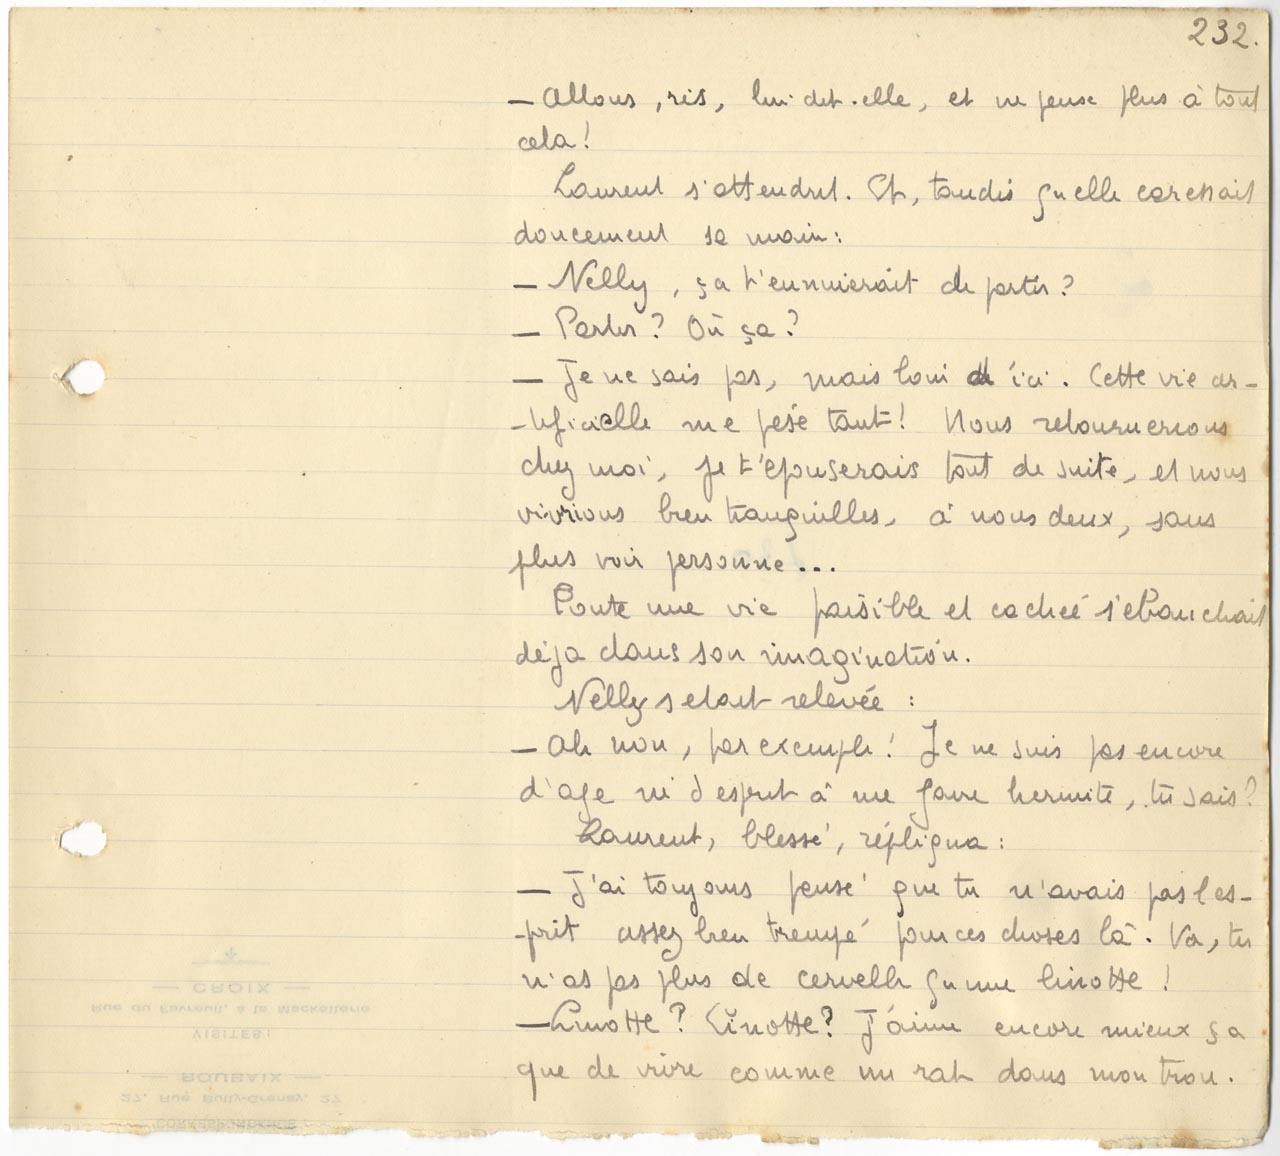 232.
— Allons, ris, lui dit-elle, et ne pense plus à tout
cela !
Laurent s'attendrit. Et, tandis qu'elle caressait
doucement sa main :
— Nelly, ça t'ennuierait de partir ?
— Partir ? Où ça ?
— Je ne sais pas, mais loin d'ici. Cette vie ar-
-tificielle me pèse tant ! Nous retournerions
chez moi, je t'épouserais tout de suite, et nous
vivrions bien tranquilles, à nous deux, sans
plus voir personne ...
Toute une vie paisible et cachée s'ébauchait
déjà dans son imagination.
Nelly s'etait relevée :
— Ah non, par exemple ! Je ne suis pas encore
d'age ni d'esprit à me faire hermite, tu sais ?
Laurent, blessé, répliqua :
— J'ai toujours pensé que tu n'avais pas l'es-
-prit assez bien trempé pour ces choses là. Va, tu
n'as pas plus de cervelle qu'une linotte !
— Linotte ? Linotte ? J'aime encore mieux ça
que de vivre comme un rat dans mon trou.
— CROIX —
Rue du Favreuil, à la Mackellerie
VISITES :
— ROUBAIX —
27, Rue Bully-Grenay, 27
CORRESPONDANCE